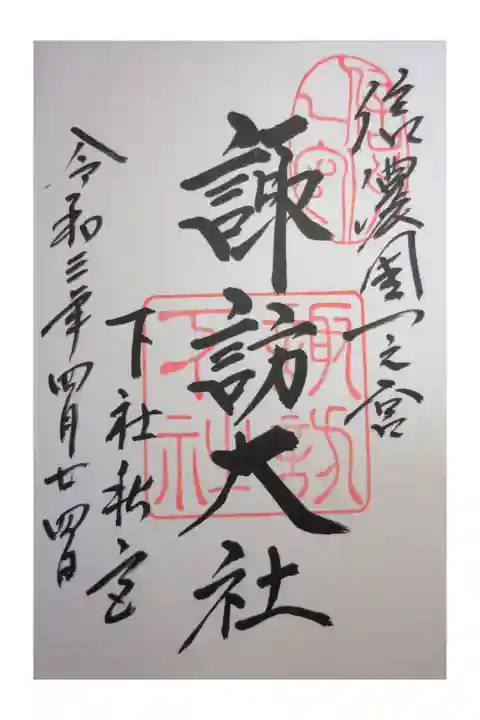 信濃國一之宮
諏訪大社
下社秋宮
令和三年四月廿四日